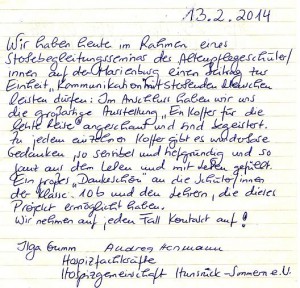 13.2.2014
Wir haben heute im Rahmen eines
Sterbebegleitungsseminars der Altenpflegeschüler/
innen auf der Marienburg einen Beitrag zur
Einheit "Kommunikation mit sterbenden Menschen
leisten dürfen. Im Anschluss haben wir uns
die großartige Ausstellung "Ein Koffer für die
letzte Reise" angeschaut und sind begeistert.
Zu jedem einzelnen Koffer gibt es wunderbare
Gedanken, so sensibel und tiefgründig und so
ganz aus dem Leben und mit Leben gefüllt.
Ein großes "Dankeschön" an die Schüler/innen
der Klasse 10b und den Lehrern, die dieses
Projekt ermöglicht haben.
Wir nehmen auf jeden Fall Kontakt auf!
Ilga Gumm Andrea
Hospizfachkräfte
Hospizgemeinschaft Hunsrück-Simmern e.V.